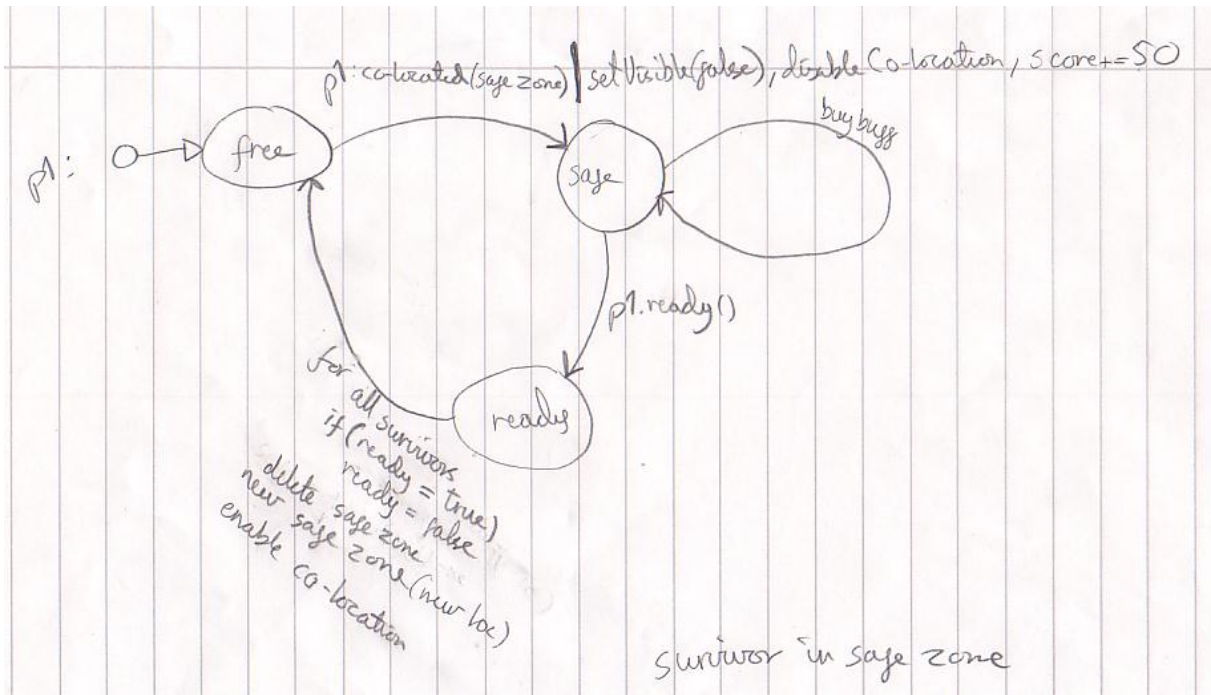 p1: co-located(safe zone) | setVisible(false), disable Co-location, score+=50
buy buff
p1:
free
safe
p1.ready()
ready
for all survivors
if (ready = true)
ready = false
delete safe zone
new safe zone (new loc)
enable co-location
survivor in safe zone